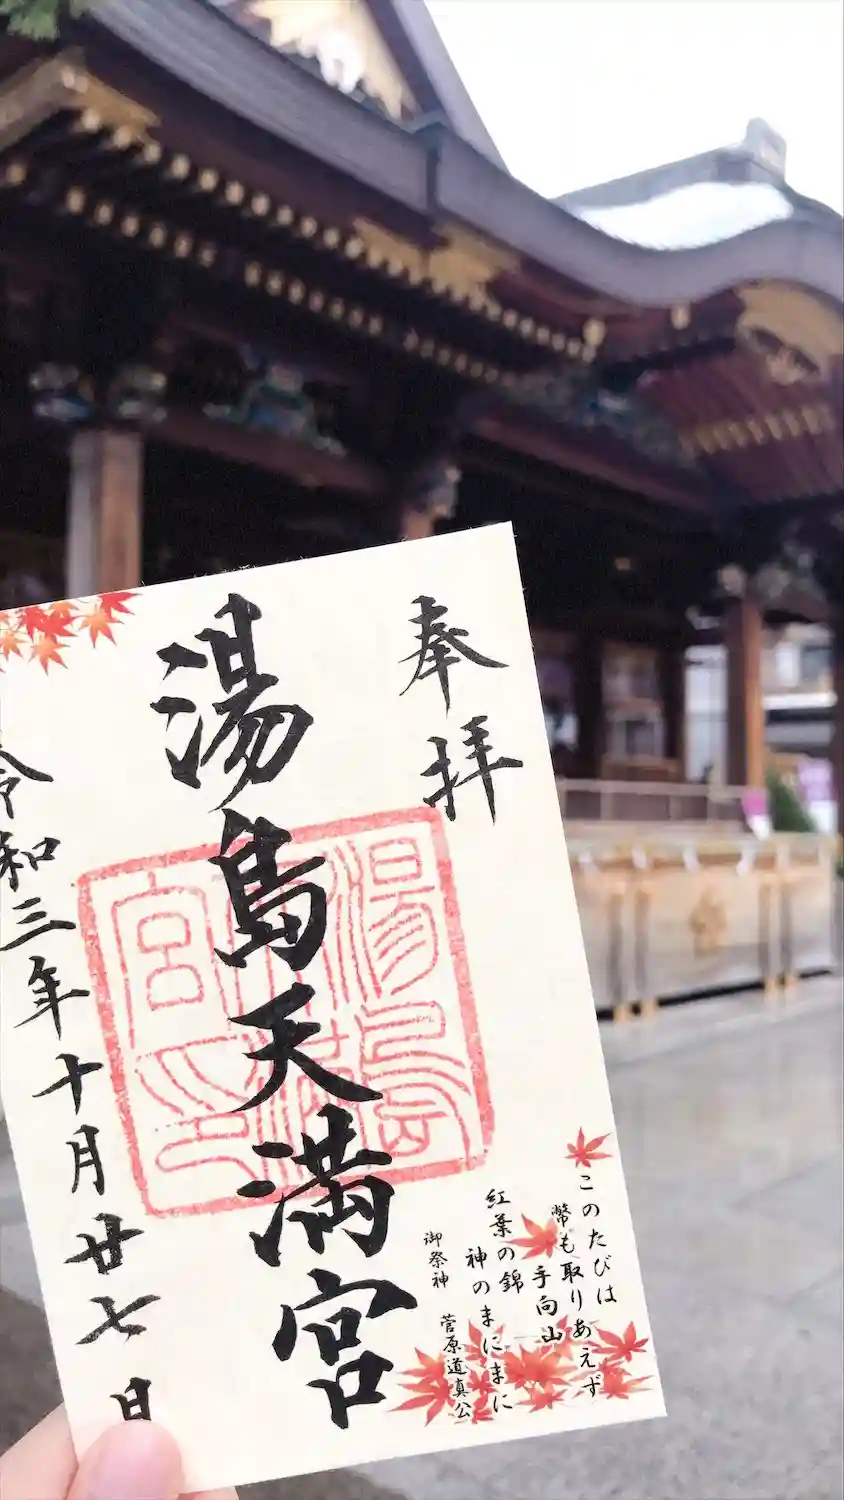 奉拝
湯島天満宮
令和三年十月廿七日
湯島天満宮印
このたびは
幣も取りあえず
手向山
紅葉の錦
神のまにまに
御祭神 菅原道真公